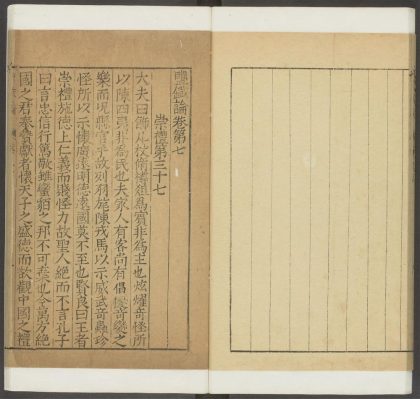 鹽鐵論卷第七
崇禮第三十七
大夫曰飾几杖脩樽俎爲賓非爲主也炫耀奇怪所
以陳四夷非爲民也夫家人有客尚有倡優奇變之
樂而況縣官乎故列羽旄陳戎馬以示威武奇蟲珍
怪所以示懷廣遠明德遠國莫不至也賢良曰王者
崇禮施德上仁義而賤怪力故聖人絕而不言孔子
曰言忠信行篤敬雖蠻貊之邦不可棄也今萬方絕
國之君奉贄獻者懷天子之盛德而欲觀中國之禮